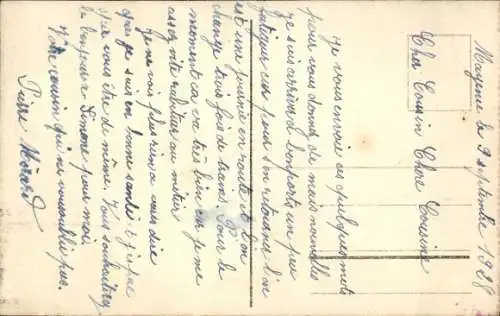 Mayenne le 9 septembre 1938
Cher Cousin Chère Cousine
Je vous envoie ces quelques mots
pour vous donner de mes nouvelles
je suis arrivé à bon port un peu
fatigué car pour s'en retourner l'on
est une journée en route et l'on
change trois fois de trains. Pour le
moment ca va très bien et je me
assez vite au métier
je ne vois plus rien a vous dire
que je suis en bonne santé et j'espère
que vous être de même. Vous souhaiterez
le bonjour a Simone pour moi
Votre cousin qui ne vous oublie pas.
Pierre